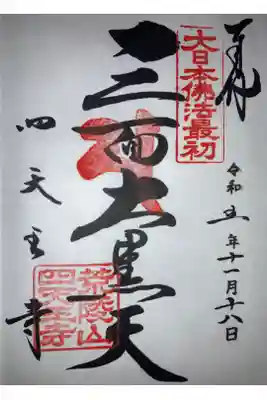 奉拝
大日本佛法最初
令和五年十一月十八日
三面大黒天
四天王寺
荒陵山
四天王寺